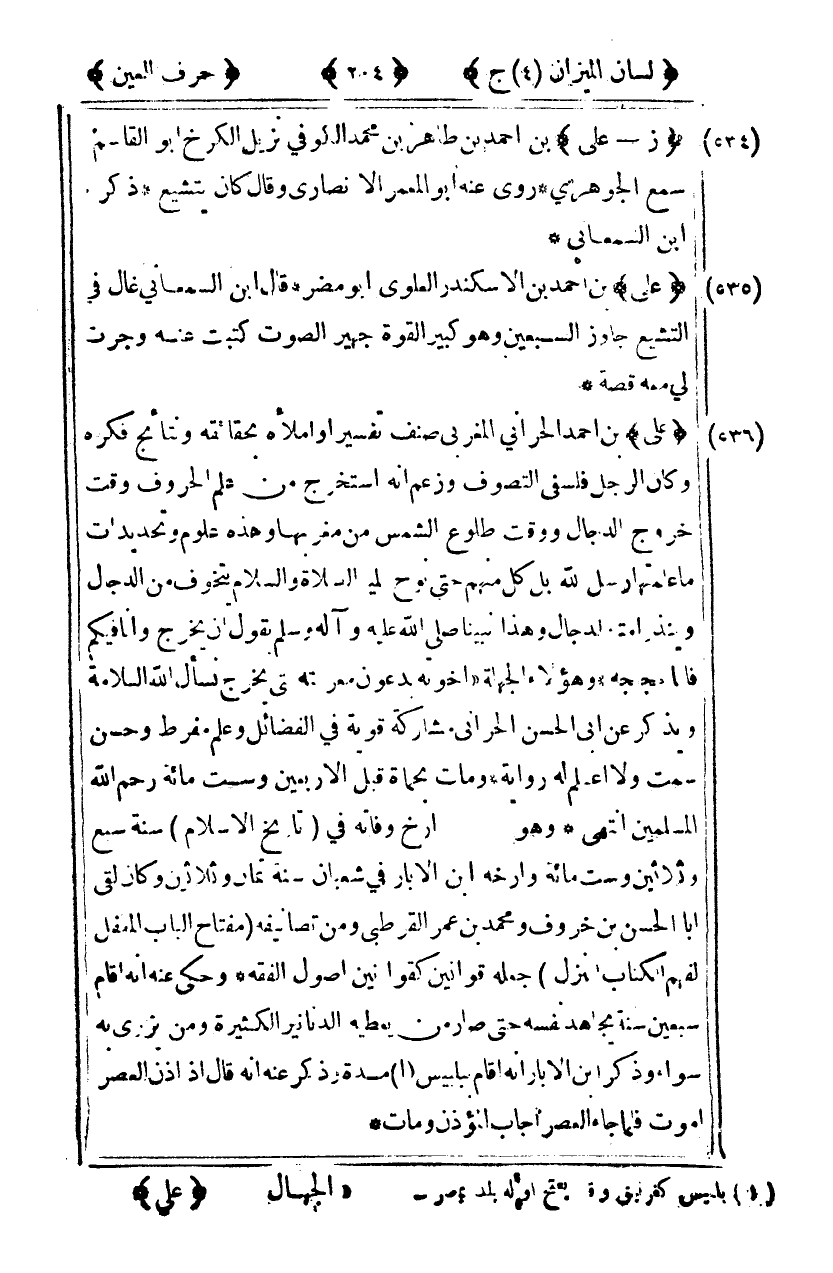 ﴿ لسان الميزان (٤) ج ﴾ ﴿ ٢٠٤ ﴾ ﴿ حرف العين ﴾
(٥٣٤) ﴿ ز — على ﴾ بن احمد بن طاهر بن محمد الدلوفي نزيل الكرخ ابو القاسم
سمع الجوهري * روى عنه ابو المعمر الا نصارى وقال كان يتشيع * ذكر
ابن السمعاني *
(٥٣٥) ﴿ على ﴾ بن احمد بن الاسكندر العلوى ابو مضر * قال ابن السمعاني غال في
التشيع جاوز السبعين وهو كبير القوة جهير الصوت كتبت عنه وجرت
لي معه قصة *
(٥٣٦) ﴿ على ﴾ بن احمد الحراني المغربى صنف تفسير او املأه بحقائقه ونتائج فكره
وكان الرجل فلسفى التصوف وزعم انه استخرج من علم الحروف وقت
خروج الدجال ووقت طلوع الشمس من مغربها وهذه علوم وتحديدات
ما علمتها رسل لله بل كل منهم حتى نوح عليه الصلاة والسلام يتخوف من الدجال
وينذر امته الدجال وهذا نبينا صلى الله عليه وآله وسلم يقول ان يخرج وانا فيكم
فانا حجيجه * وهؤلاء الجهلة « اخوته يدعون معرفته متى يخرج نسأل الله السلامة
ويذكر عن ابى الحسن الحرانى مشاركة قوية في الفضائل وعلم مفرط وحسن
سمت ولا اعلم له رواية * ومات بحماة قبل الاربعين وست مائة رحم الله
المسلمين انتهى * وهو ارخ وفاته في ( تاريخ الاسلام ) سنة سبع
وثلاثين وست مائة وارخه ابن الابار في شعبان سنة ثمان وثلاثين وكان لقى
ابا الحسن بن خروف ومحمد بن عمر القرطبي ومن تصانيفه (مفتاح الباب المقفل
لفهم الكتاب المنزل ) جعله قوانين كقوا نين اصول الفقه * وحكى عنه انه اقام
سبعين سنة يجاهد نفسه حتى صار من يعطيه الدنانير الكثيرة ومن يزرى به
سواء وذكر ابن الابار انه اقام ببلبيس (١) مدة وذكر عنه انه قال اذ اذن العصر
اموت فلما جاء العصر اجاب المؤذن ومات *
(١) بلبيس كغرنيق وقد يفتح اوله بلد بمصر — « الجهال ﴿ على ﴾